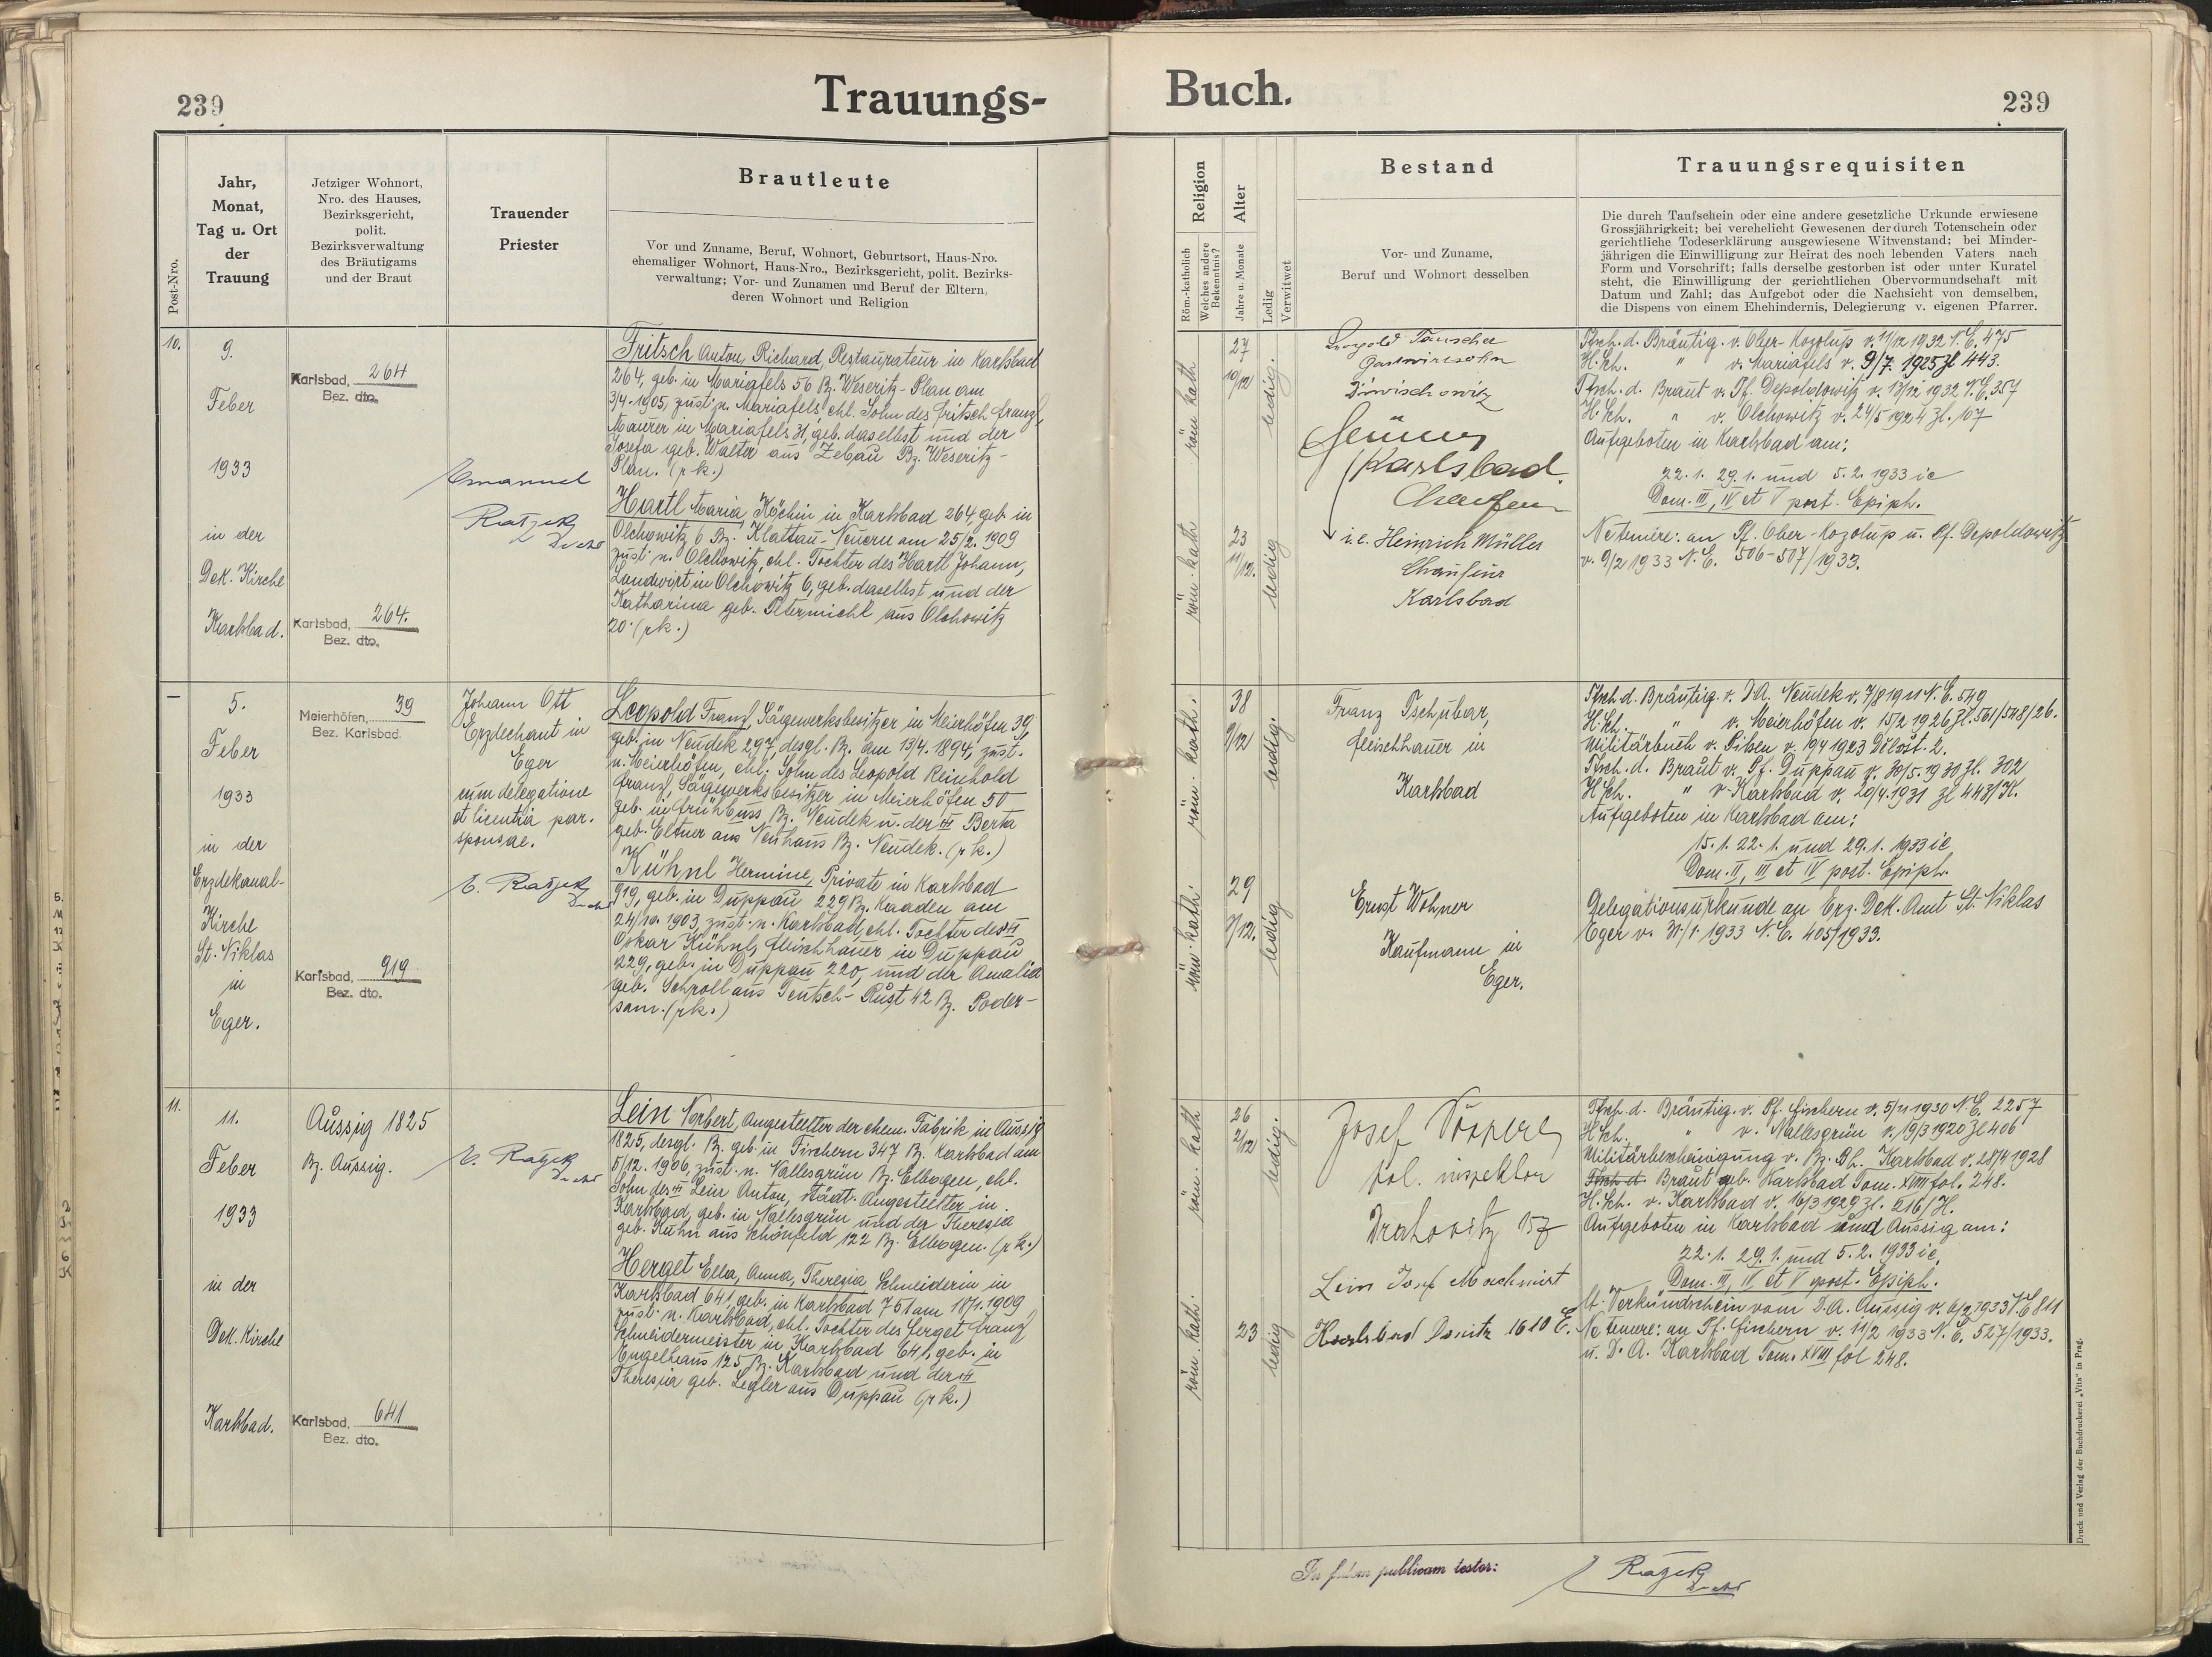 239
Trauungs-
Buch.
239
Post-Nro.
Jahr,
Monat,
Tag u. Ort
der
Trauung
Jetziger Wohnort,
Nro. des Hauses,
Bezirksgericht,
polit.
Bezirksverwaltung
des Bräutigams
und der Braut
Trauender
Priester
Brautleute
Vor und Zuname, Beruf, Wohnort, Geburtsort, Haus-Nro.
ehemaliger Wohnort, Haus-Nro., Bezirksgericht, polit. Bezirks-
verwaltung; Vor- und Zunamen und Beruf der Eltern,
deren Wohnort und Religion
Religion
Röm.-katholich
Welches andere
Bekenntnis?
Alter
Jahre u. Monate
Ledig
Verwitwet
Bestand
Vor- und Zuname,
Beruf und Wohnort desselben
Trauungsrequisiten
Die durch Taufschein oder eine andere gesetzliche Urkunde erwiesene
Grossjährigkeit; bei verehelicht Gewesenen der durch Totenschein oder
gerichtliche Todeserklärung ausgewiesene Witwenstand; bei Minder-
jährigen die Einwilligung zur Heirat des noch lebenden Vaters nach
Form und Vorschrift; falls derselbe gestorben ist oder unter Kuratel
steht, die Einwilligung der gerichtlichen Obervormundschaft mit
Datum und Zahl; das Aufgebot oder die Nachsicht von demselben,
die Dispens von einem Ehehindernis, Delegierung v. eigenen Pfarrer.
10.
9.
Feber
1933
in der
Dek. Kirche
Karlsbad.
Karlsbad, 264
Bez. dto.
Karlsbad, 264.
Bez. dto.
Emanuel
Ratzek
Fritsch Anton, Richard, Restaurateur in Karlsbad
264, geb. in Mariafels 56 Bz. Weseritz-Plan am
3/4. 1905, zust. n. Mariafels, ehl. Sohn des Fritsch Franz,
Maurer in Mariafels 31, geb. daselbst und der
Josefa geb. Walter aus Zebau Bz. Weseritz-
Plan. (rk.)
Hartl Maria, Köchin in Karlsbad 264, geb. in
Olchowitz 6 Bz. Klattau-Neuern am 25/2. 1909
zust. n. Olchowitz, ehl. Tochter des Hartl Johann,
Landwirt in Olchowitz 6, geb. daselbst und der
Katharina geb. aus Olchowitz
20. (rk.)
röm. kath
27
10/12
ledig.
röm. kath
23
11/12.
ledig
Leopold Tauscher
Gastwirtsohn
Karlsbad.
i.e. Heinrich Müller
Chaufeur
Karlsbad
Tfsch. d. Bräutig. v. Ober-Kozolup v. 11/12 1932 N.E. 475
H.Sch. " v. Mariafels v. 9/7. 1925 Zl 443.
Tfsch. d. Braut v. Pf. Depoldowitz v. 13/12 1932 N.E. 357
H.Sch. " v. Olchowitz v. 24/5 1924 Zl. 107
Aufgeboten in Karlsbad am:
22.1. 29.1. und 5.2. 1933 ie
Dom. III, IV et V post. Epiph.
Ne temere: an Pf. Ober-Kozolup u. Pf. Depoldowitz
v. 9/2 1933 N.E. 506-507/1933.
–
5.
Feber
1933
in der
Erzdekanal-
Kirche
St. Niklas
in
Eger.
Meierhöfen, 39
Bez. Karlsbad.
Karlsbad, 919
Bez. dto.
Johann Ott
Erzdechant in
Eger
cum delegatione
et licentia par.
sponsae.
E. Ratzek
Leopold Franz, Sägewerksbesitzer in Meierhöfen 39,
geb. in Neudek 297, desgl. Bz. am 13/4. 1894, zust.
n. Meierhöfen, ehl. Sohn des Leopold Reinhold
Franz, Sägewerksbesitzer in Meierhöfen 50
geb. in Frühbuss Bz. Neudek u. der Berta
geb. Eltner aus Neuhaus Bz. Neudek. (rk.)
Kühnl Hermine, Private in Karlsbad
919, geb. in Duppau 229 Bz. Kaaden am
24/10. 1903, zust. n. Karlsbad, ehl. Tochter des
Oskar Kühnl, Fleischhauer in Duppau
229, geb. in Duppau 220, und der Amalia
geb. Schroll aus Teutsch-Rust 42 Bz. Poder-
sam. (rk.)
röm. kath.
38
9/12
ledig.
röm. kath.
29
7/12.
ledig
Franz Tschubar,
Fleischhauer in
Karlsbad
Ernst Wohner
Kaufmann in
Eger.
Tfsch. d. Bräutig. v. D.A. Neudek v. 7/8 1911 N.E. 549
H.Sch. " v. Meierhöfen v. 15/2 1926 Zl. 561/548/26.
Militärbuch v. Pilsen v. 19/4 1923
Tfsch. d. Braut v. Pf. Duppau v. 30/5. 1930 Zl. 302
H.Sch. " v. Karlsbad v. 20/4. 1931 Zl 443/H.
Aufgeboten in Karlsbad am:
15.1. 22.1. und 29.1. 1933 ie
Dom. II, III et IV post. Epiph.
Delegationsurkunde an Erz. Dek. Amt St. Niklas
Eger v. 31/1. 1933 N.E. 405/1933.
11.
11.
Feber
1933
in der
Dek. Kirche
Karlsbad.
Aussig 1825
Bz. Aussig.
Karlsbad, 641
Bez. dto.
E. Ratzek
Lein Norbert, Angestellter der chem. Fabrik in Aussig
1825, desgl. Bz. geb. in Fischern 347 Bz. Karlsbad am
5/12. 1906, zust. n. Nallesgrün Bz. Elbogen, ehl.
Sohn des Lein Anton, städt. Angestellter in
Karlsbad, geb. in Nallesgrün und der Theresia
geb. Kuhn aus Schönfeld 122 Bz. Elbogen. (rk.)
Herget Ella, Anna, Theresia, Schneiderin in
Karlsbad 641, geb. in Karlsbad 751 am 18/1. 1909
zust. n. Karlsbad, ehl. Tochter des Herget Franz
Schneidermeister in Karlsbad 641, geb. in
Engelhaus 125 Bz. Karlsbad und der
Theresia geb. Legler aus Duppau (rk.)
röm. kath
26
2/12
ledig.
röm. kath.
23
ledig
Josef
pol. inspektor
Drahovitz 157
Lein Josef Maschinist
Karlsbad Donitz 1610 E.
Tfsch. d. Bräutig. v. Pf. Fischern v. 5/11 1930 N.E. 2257
H.Sch. " v. Nallesgrün v. 19/3 1920 Zl 406
Militärbescheinigung v. Bz. Bh. Karlsbad v. 28/4 1928
Tfsch. d. Braut geb. Karlsbad Tom. XVIII fol. 248.
H.Sch. v. Karlsbad v. 16/3 1929 Zl. 216/H.
Aufgeboten in Karlsbad und Aussig am:
22.1. 29.1. und 5.2. 1933 ie,
Dom. III, IV et V post. Epiph.
lt. Verkündschein vom D.A. Aussig v. 6/2 1933 N.E. 811
Ne temere: an Pf. Fischern v. 11/2 1933 N.E. 527/1933.
u. D.A. Karlsbad Tom. XVIII fol 248.
In fidem publicam testor:
Ratzek
Druck und Verlag der Buchdruckerei „Vita“ in Prag.